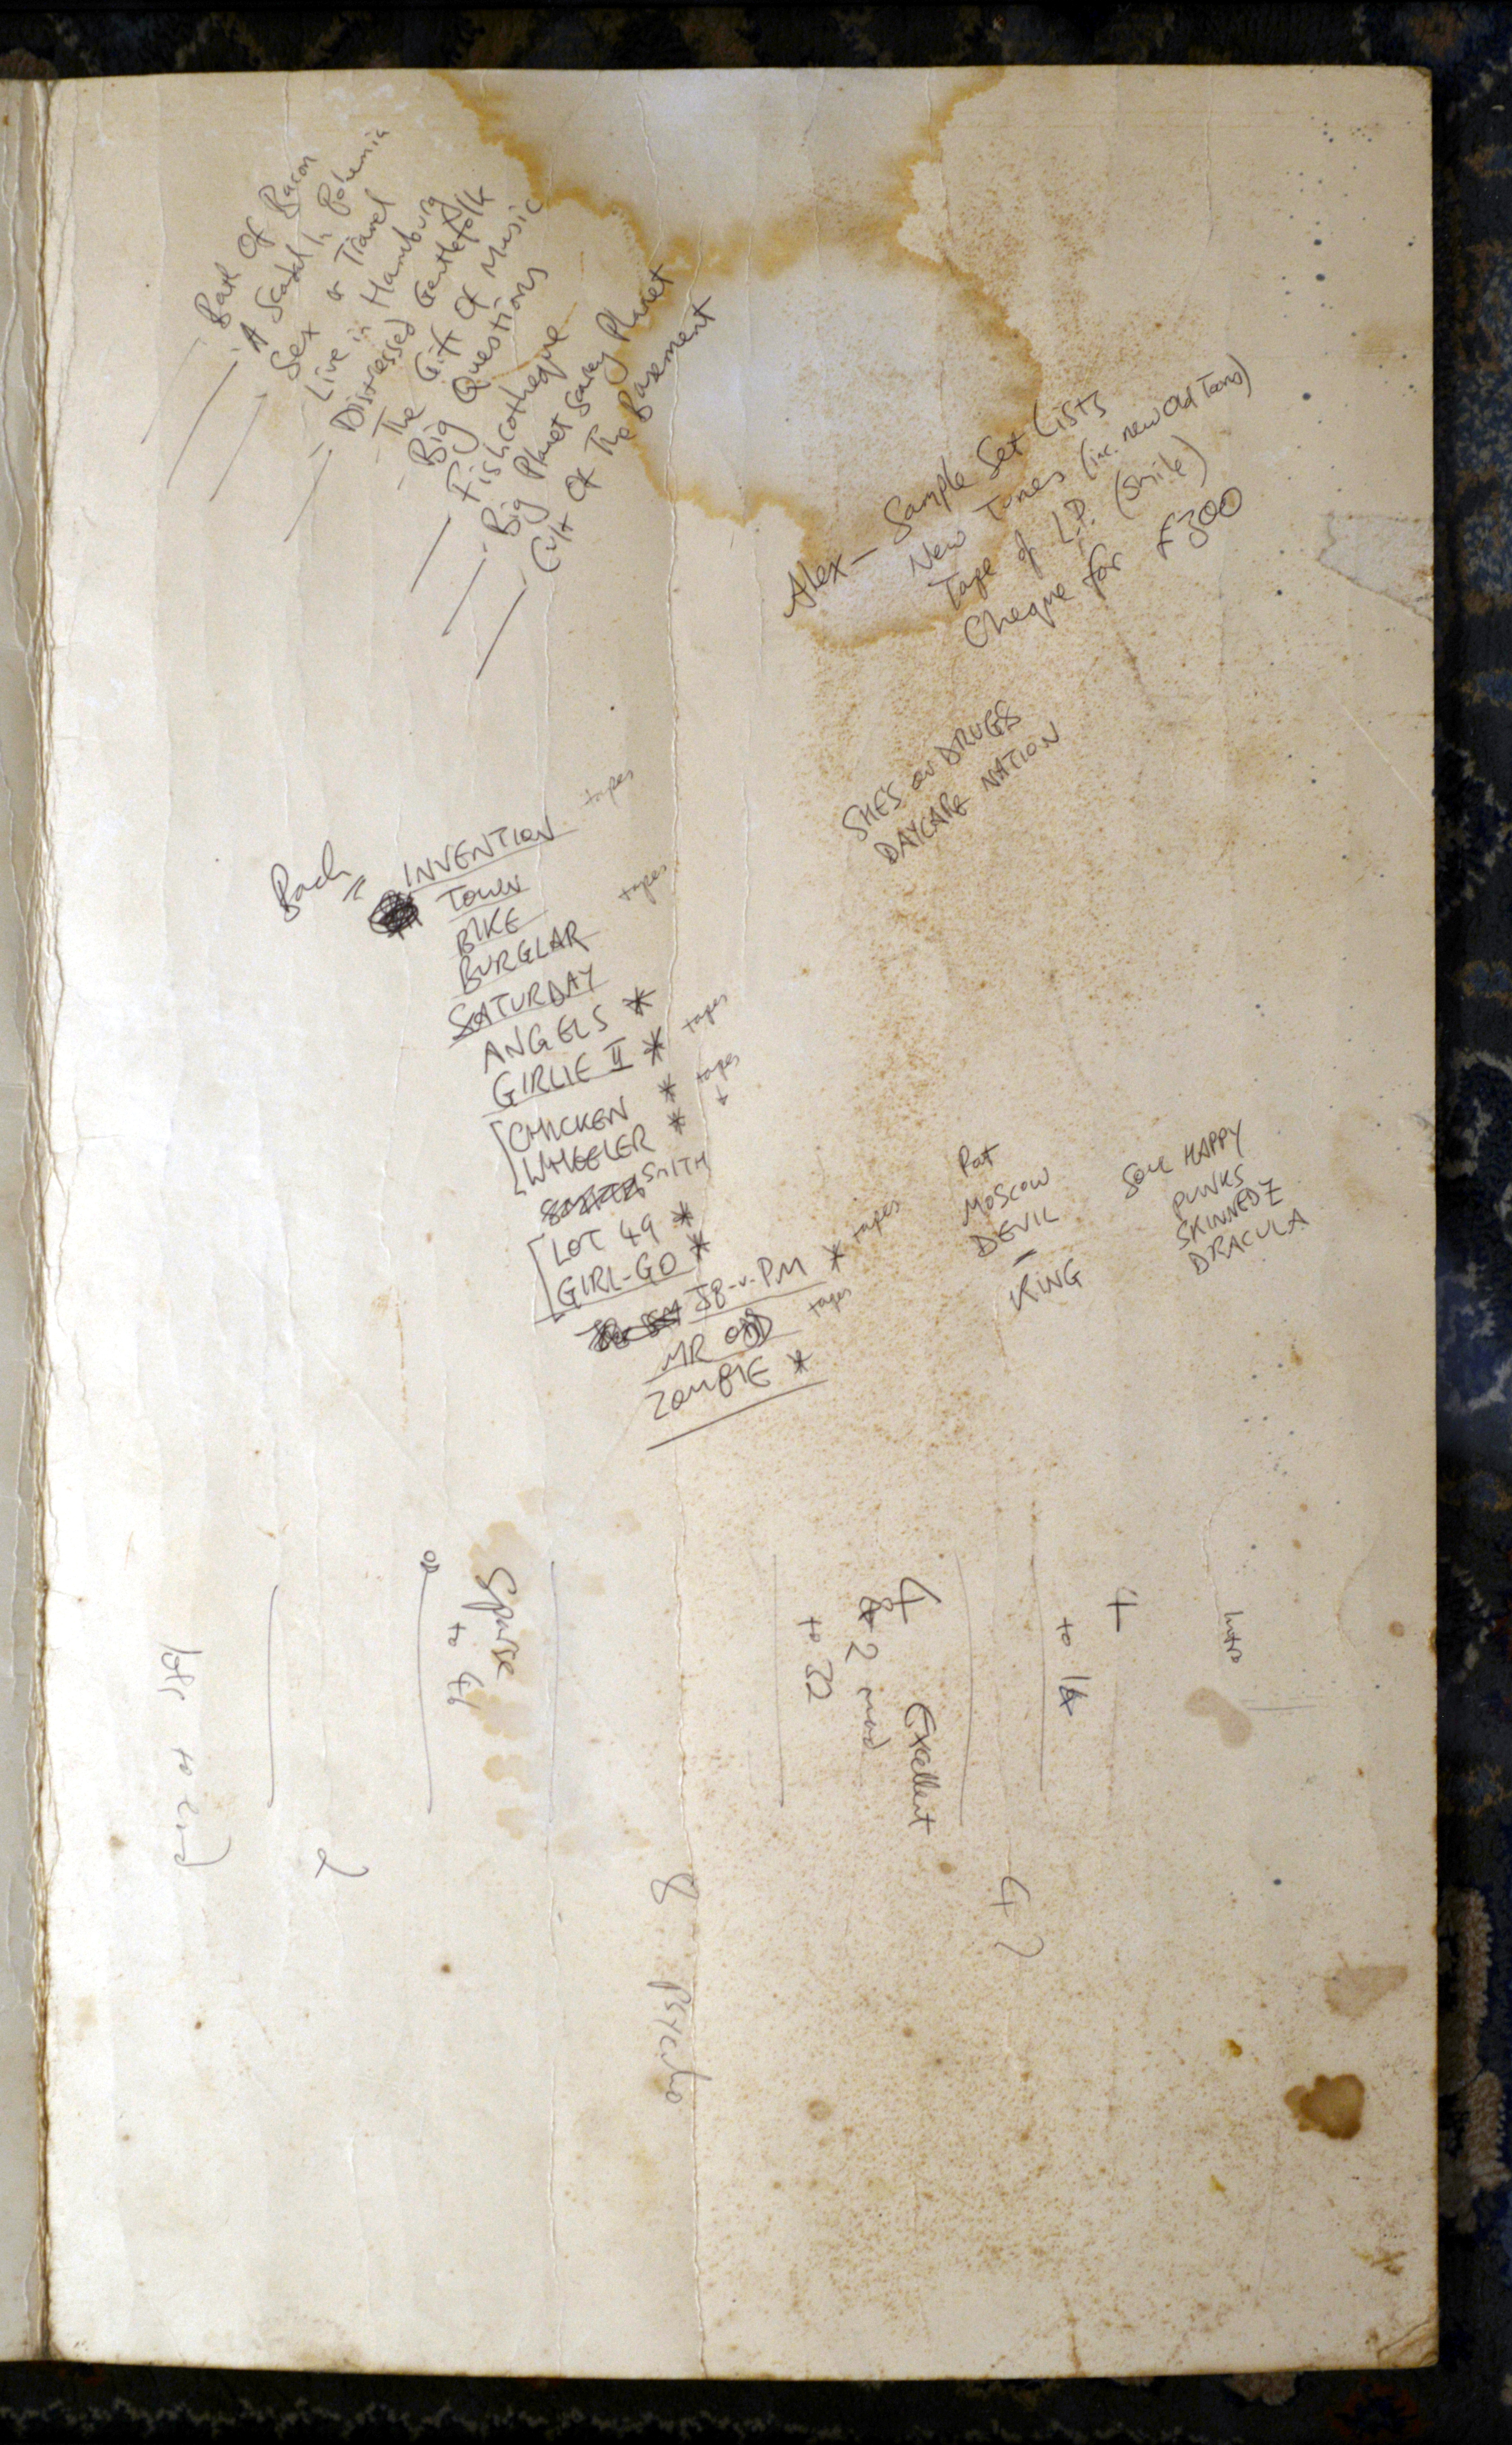 Best Of Bacon
A Scandal In Bohemia
Sex & Travel
Live in Hamburg
Distressed Gentlefolk
The Gift Of Music
Big Questions
Fishcotheque
Big Planet Scarey Planet
Cult Of The Basement
Alex - Sample Set Lists
New Tones (inc. new old Tones)
Tape of L.P. (Smile)
Cheque for £300
SHES ON DRUGS
DAYCARE NATION
Bach = INVENTION tapes
TOWN
BIKE tapes
BURGLAR
SATURDAY
ANGELS *
GIRLIE II * tapes
CHICKEN * tapes
WHEELER * ↓
SMITH
LOT 49 *
GIRL-GO *
JB-v-PM * tapes
MR ODD tapes
ZOMBIE *
Pat
MOSCOW
DEVIL
-
KING
SOUL HAPPY
PUNKS
SKINNEDZ
DRACULA
Intro
4
to 16
4 ?
4 Excellent
& 2 mad
to 32
8 Psycho
Sparse
to 64
on
2
to end